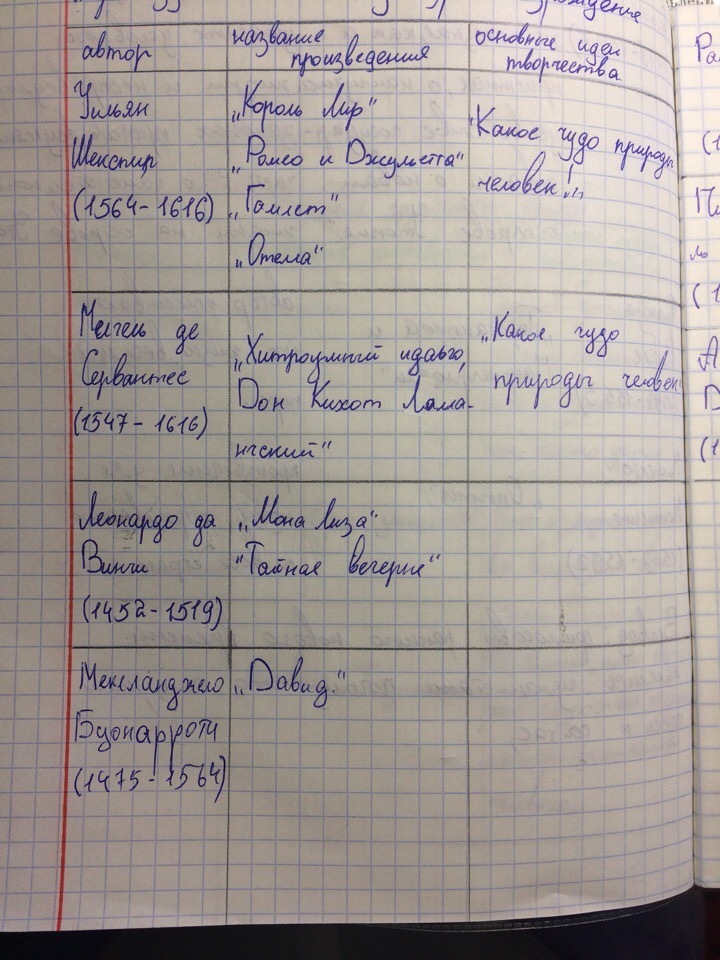 рождения
автор
название произведения
основные идеи творчества
Уильян
Шекспир
(1564-1616)
„Король Лир"
„Ромео и Джульетта"
„Гамлет"
„Отелла"
"Какое чудо природы
человек!"
Мигель де
Сервантес
(1547-1616)
„Хитроумный идальго,
Дон Кихот Лама-
нчский"
„Какое чудо
природы человек
Леонардо да
Винчи
(1452-1519)
„Мона Лиза"
"Тайная вечерня"
Микеланджело
Буонарроти
(1475-1564)
„Давид."